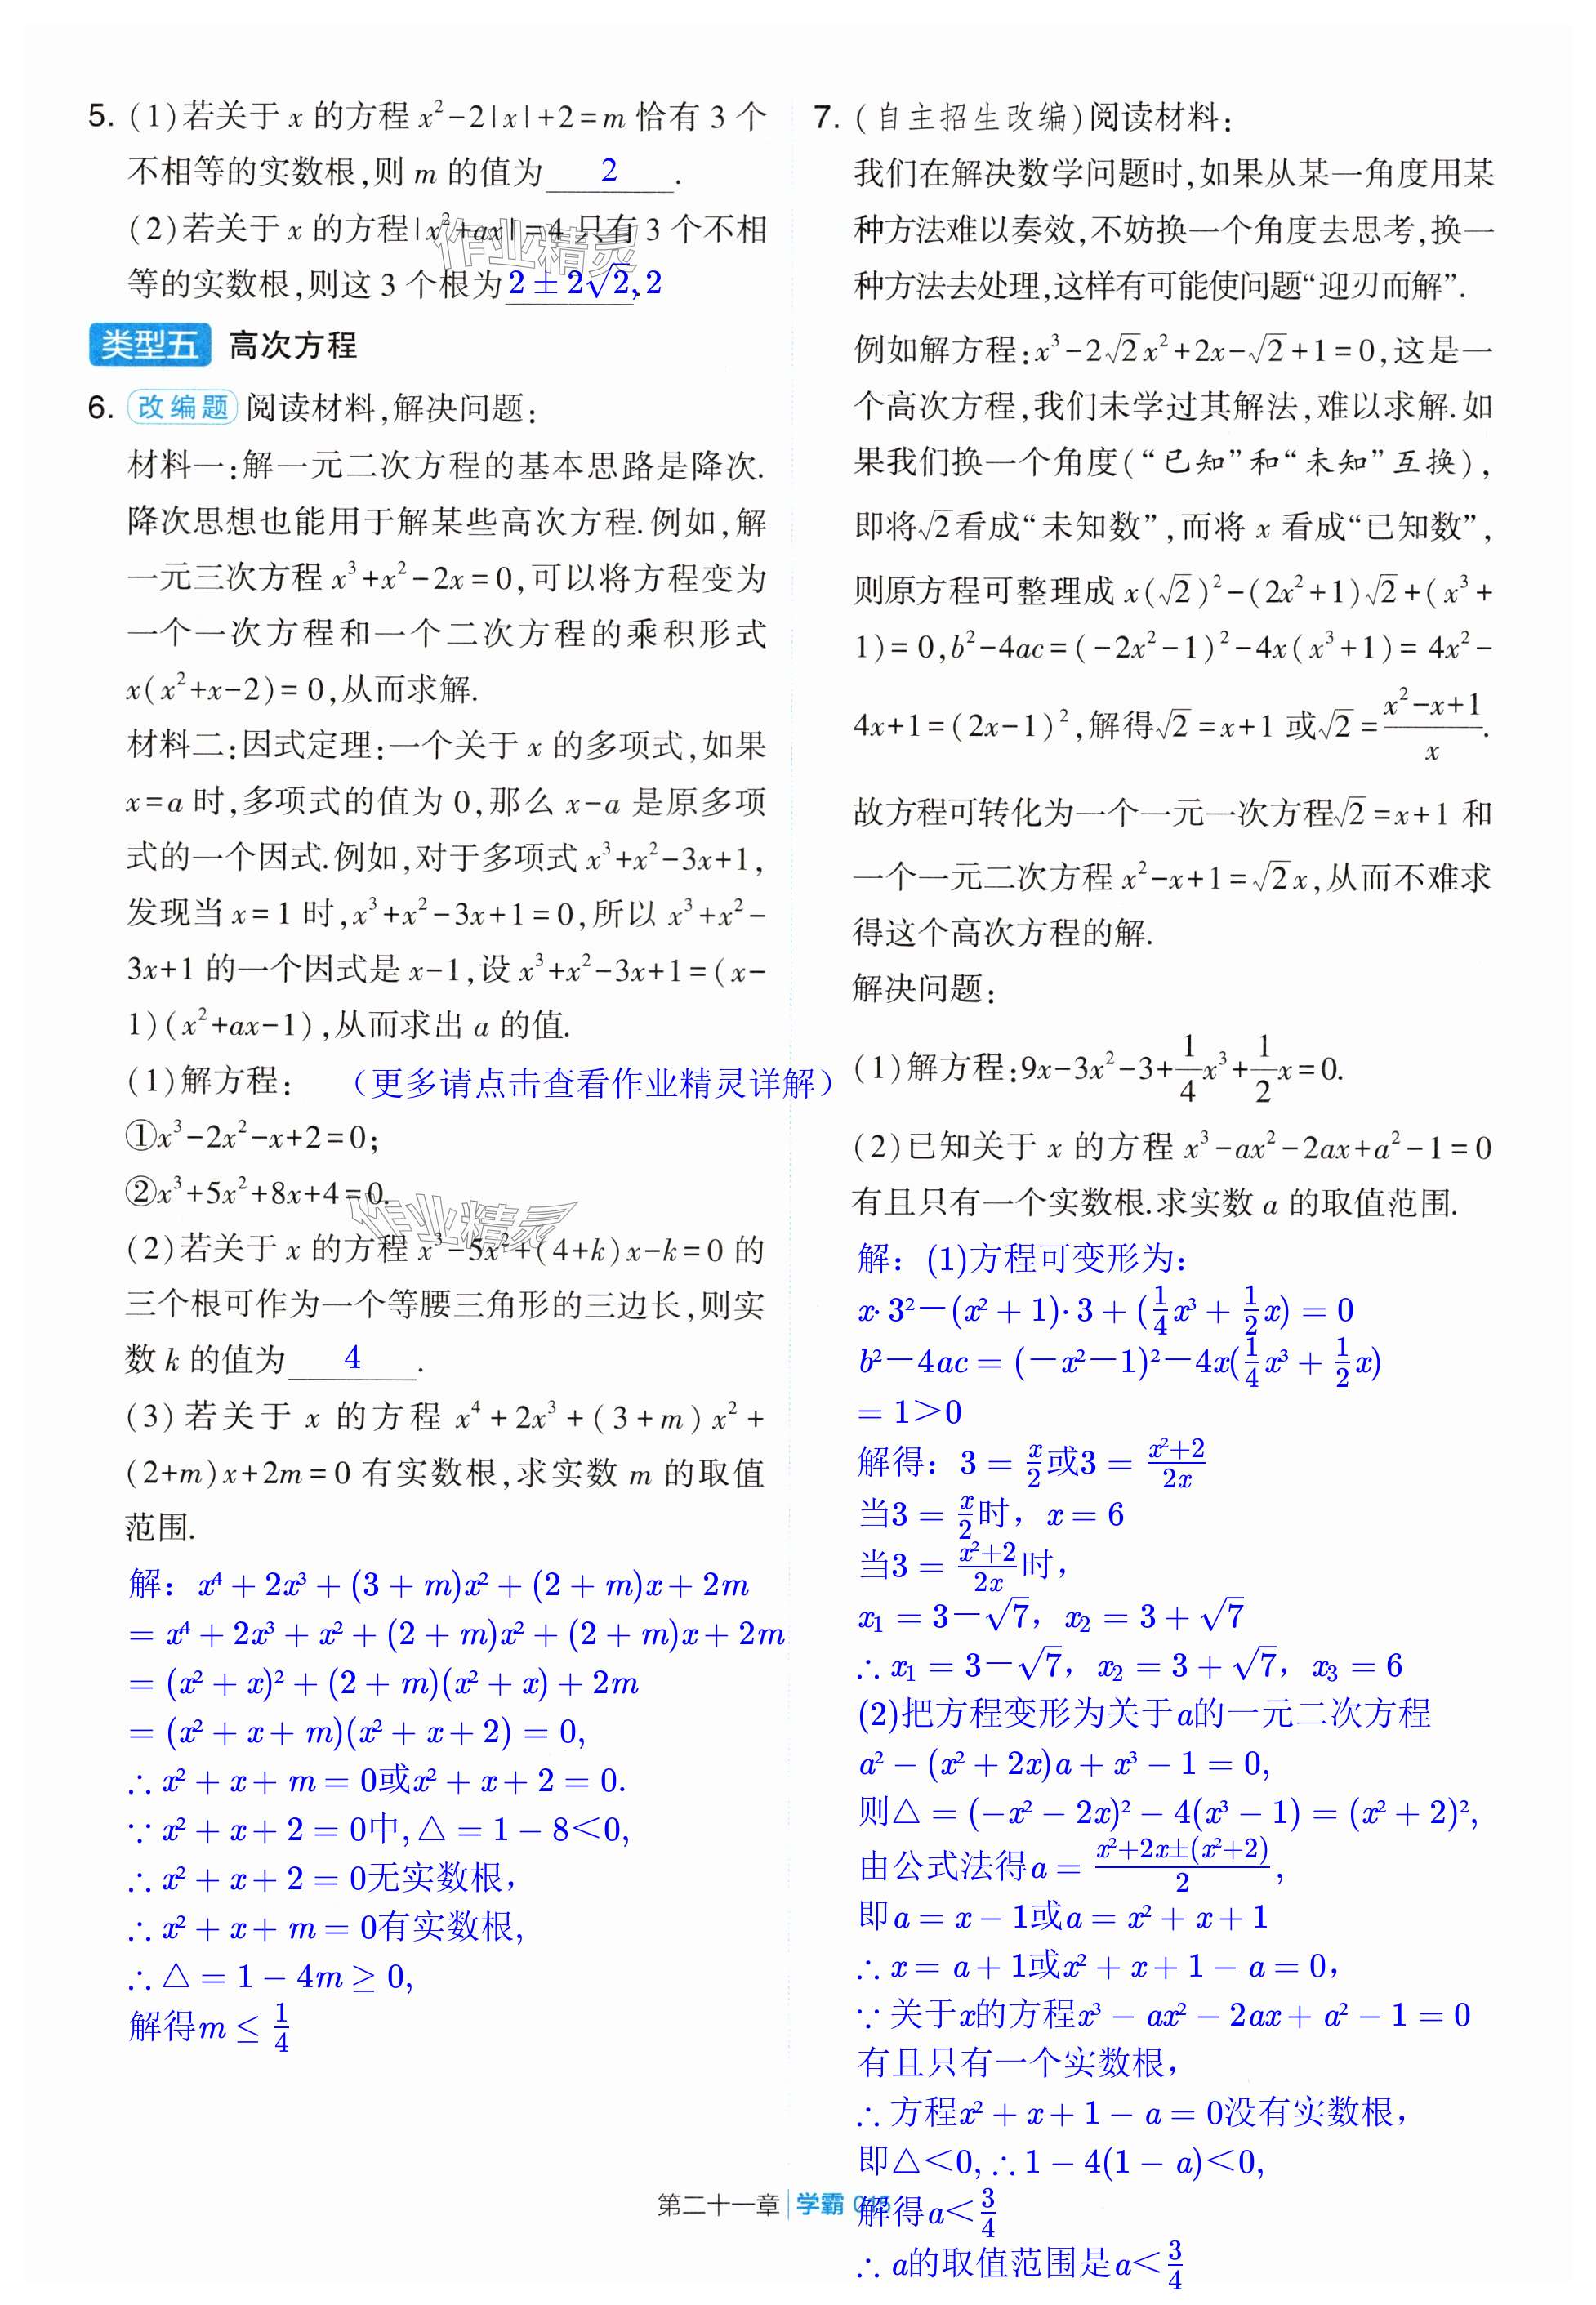 5. (1)若关于 x 的方程 x²-2|x|+2=m 恰有 3 个
不相等的实数根,则 m 的值为 2 .
(2)若关于 x 的方程|x²+ax|=4 只有 3 个不相
等的实数根,则这 3 个根为 2±2√2, 2 .
类型五 高次方程
6. 改编题 阅读材料,解决问题:
材料一:解一元二次方程的基本思路是降次.
降次思想也能用于解某些高次方程.例如,解
一元三次方程 x³+x²-2x=0,可以将方程变为
一个一次方程和一个二次方程的乘积形式
x(x²+x-2)=0,从而求解.
材料二:因式定理:一个关于 x 的多项式,如果
x=a 时,多项式的值为 0,那么 x-a 是原多项
式的一个因式.例如,对于多项式 x³+x²-3x+1,
发现当 x=1 时,x³+x²-3x+1=0,所以 x³+x²-
3x+1 的一个因式是 x-1,设 x³+x²-3x+1=(x-
1)(x²+ax-1),从而求出 a 的值.
(1)解方程: （更多请点击查看作业精灵详解）
①x³-2x²-x+2=0;
②x³+5x²+8x+4=0.
作业精灵
(2)若关于 x 的方程 x³-5x²+(4+k)x-k=0 的
三个根可作为一个等腰三角形的三边长,则实
数 k 的值为 4 .
(3)若关于 x 的方程 x⁴+2x³+(3+m)x²+
(2+m)x+2m=0 有实数根,求实数 m 的取值
范围.
解：x⁴+2x³+(3+m)x²+(2+m)x+2m
=x⁴+2x³+x²+(2+m)x²+(2+m)x+2m
=(x²+x)²+(2+m)(x²+x)+2m
=(x²+x+m)(x²+x+2)=0,
∴x²+x+m=0或x²+x+2=0.
∵x²+x+2=0中,△=1-8<0,
∴x²+x+2=0无实数根，
∴x²+x+m=0有实数根,
∴△=1-4m≥0,
解得m≤1/4
7. (自主招生改编)阅读材料:
我们在解决数学问题时,如果从某一角度用某
种方法难以奏效,不妨换一个角度去思考,换一
种方法去处理,这样有可能使问题“迎刃而解”.
例如解方程:x³-2√2x²+2x-√2+1=0,这是一
个高次方程,我们未学过其解法,难以求解.如
果我们换一个角度(“已知”和“未知”互换),
即将√2看成“未知数”,而将 x 看成“已知数”,
则原方程可整理成 x(√2)²-(2x²+1)√2+(x³+
1)=0,b²-4ac=(-2x²-1)²-4x(x³+1)=4x²-
4x+1=(2x-1)²,解得√2=x+1 或√2=(x²-x+1)/x.
故方程可转化为一个一元一次方程√2=x+1 和
一个一元二次方程 x²-x+1=√2x,从而不难求
得这个高次方程的解.
解决问题:
(1)解方程:9x-3x²-3+1/4x³+1/2x=0.
(2)已知关于 x 的方程 x³-ax²-2ax+a²-1=0
有且只有一个实数根.求实数 a 的取值范围.
解：(1)方程可变形为：
x·3²-(x²+1)·3+(1/4x³+1/2x)=0
b²-4ac=(-x²-1)²-4x(1/4x³+1/2x)
=1>0
解得：3=x/2或3=(x²+2)/2x
当3=x/2时，x=6
当3=(x²+2)/2x时，
x₁=3-√7，x₂=3+√7
∴x₁=3-√7，x₂=3+√7，x₃=6
(2)把方程变形为关于a的一元二次方程
a²-(x²+2x)a+x³-1=0,
则△=(-x²-2x)²-4(x³-1)=(x²+2)²,
由公式法得a=(x²+2x±(x²+2))/2,
即a=x-1或a=x²+x+1
∴x=a+1或x²+x+1-a=0，
∵关于x的方程x³-ax²-2ax+a²-1=0
有且只有一个实数根，
∴方程x²+x+1-a=0没有实数根，
即△<0,∴1-4(1-a)<0,
解得a<3/4
∴a的取值范围是a<3/4
第二十一章 学霸
作业精灵